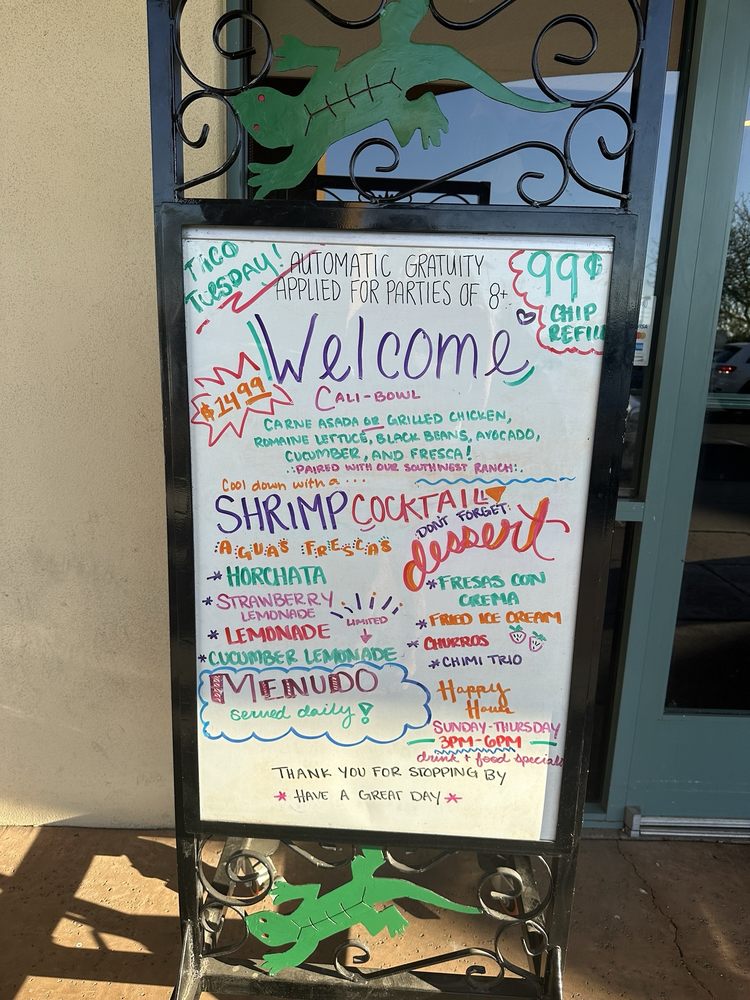 TACO
TUESDAY!
AUTOMATIC GRATUITY
APPLIED FOR PARTIES OF 8+
99¢
CHIP
REFILL
Welcome
$14.99
CALI-BOWL
CARNE ASADA OR GRILLED CHICKEN,
ROMAINE LETTUCE, BLACK BEANS, AVOCADO,
CUCUMBER, AND FRESCA!
PAIRED WITH OUR SOUTHWEST RANCH
Cool down with a ...
SHRIMP COCKTAIL
AGUAS FRESCAS
* HORCHATA
* STRAWBERRY
LEMONADE
LIMITED
* LEMONADE
* CUCUMBER LEMONADE
DON'T FORGET
dessert
* FRESAS CON
CREMA
* FRIED ICE CREAM
* CHURROS
* CHIMI TRIO
MENUDO
served daily!
Happy
Hour
SUNDAY-THURSDAY
3PM-6PM
drink + food specials
THANK YOU FOR STOPPING BY
* HAVE A GREAT DAY *